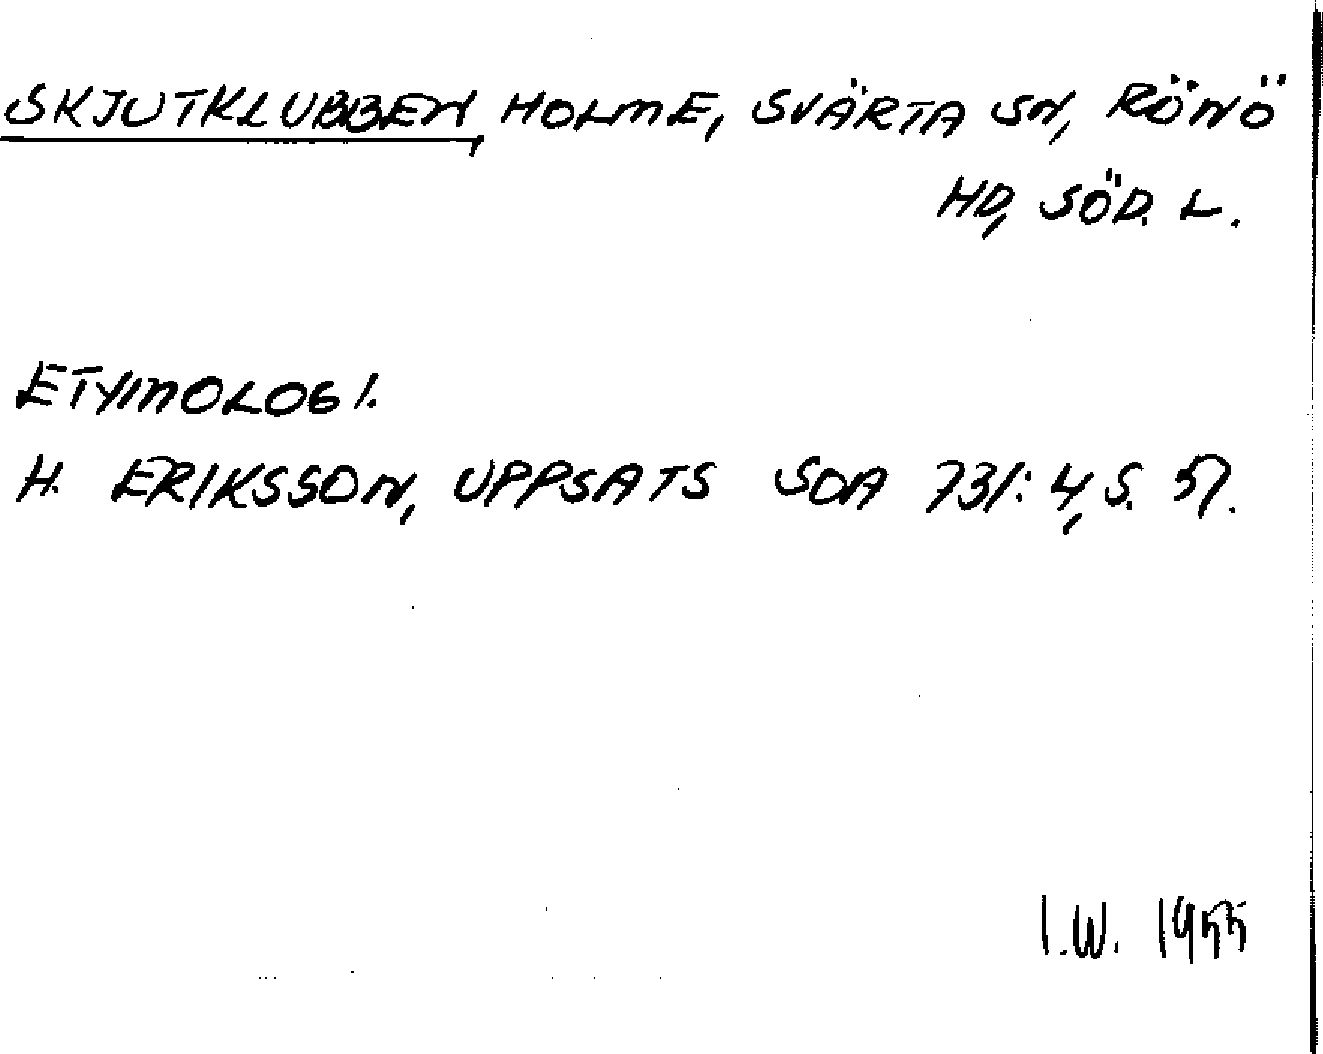 SKJUTKLUBBEN, HOLME, SVÄRTA SN, RÖNÖ
HD, SÖD. L.
ETYMOLOGI.
H. ERIKSSON, UPPSATS SOA 731:4, S. 57.
I.W. 1955